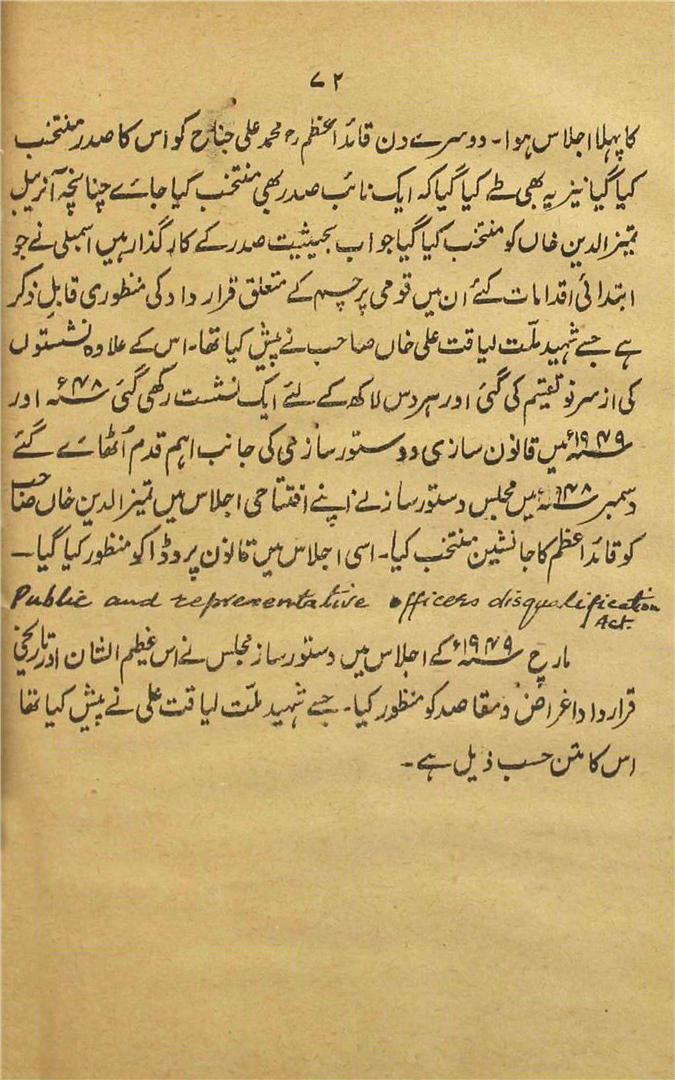 ۷۲
کا پہلا اجلاس ہوا۔ دوسرے دن قائد اعظم رح محمد علی جناح کو اس کا صدر منتخب
کیا گیا نیز یہ بھی طے کیا گیا کہ ایک نائب صدر بھی منتخب کیا جائے چنانچہ آنریبل
تمیز الدین خاں کو منتخب کیا گیا جو اب بحیثیت صدر کے کار گذار ہیں اسمبلی نے جو
ابتدائی اقدامات کئے ان میں قومی پرچم کے متعلق قرار داد کی منظوری قابل ذکر
ہے جسے شہید ملّت لیاقت علی خاں صاحب نے پیش کیا تھا۔ اس کے علاوہ نشستوں
کی از سر نو تقسیم کی گئی اور ہر دس لاکھ کے لئے ایک نشست رکھی گئی ۴۸ء اور
۱۹۴۹ء میں قانون سازی و دستور سازی کی جانب اہم قدم اُٹھائے گئے
دسمبر ۴۸ء میں مجلس دستور ساز نے اپنے افتتاحی اجلاس میں تمیز الدین خاں صاحب
کو قائد اعظم کا جانشین منتخب کیا۔ اسی اجلاس میں قانون پروڈا کو منظور کیا گیا۔
Public and representative officers disqualification
Act.
مارچ ۱۹۴۹ء کے اجلاس میں دستور ساز مجلس نے اس عظیم الشان اور تاریخی
قرار داد اغراض و مقاصد کو منظور کیا۔ جسے شہید ملّت لیاقت علی نے پیش کیا تھا
اس کا متن حسب ذیل ہے۔